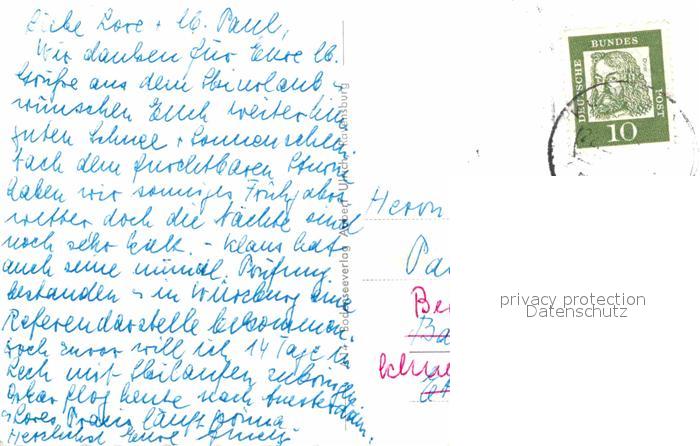 Liebe Lore + lb. Paul,
Wir danken für Eure lb.
Grüße aus dem Skiurlaub u.
wünschen Euch weiterhin
guten Schnee + Sonnenschein.
Nach dem furchtbaren Sturm
haben wir sonniges Frühjahrs
wetter doch die Nächte sind
noch sehr kalt. - Klaus hat
auch seine münal. Prüfung
bestanden u. in Würzburg eine
Referendarstelle bekommen.
noch zuvor will ich 14 Tage in
Lech mit Skilaufen zubringen.
flog heute nach Amsterdam.
Lores Praxis läuft prima
Herzlichst Eure
Bodenseeverlag Ravensburg
DEUTSCHE BUNDES POST
Dürer
10
Herrn
Pa
Be
Ba
privacy protection
Datenschutz